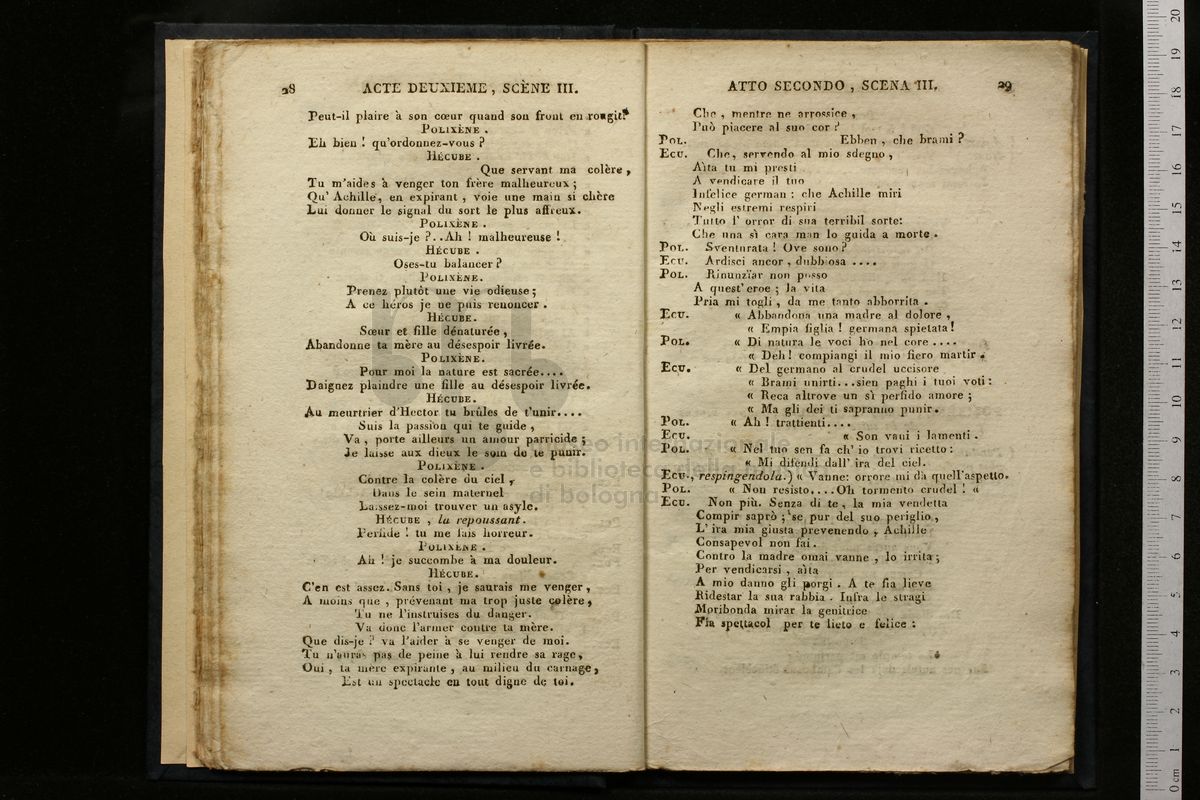 28 ACTE DEUXIEME , SCÈNE III.
Peut-il plaire à son cœur quand son front en rougit?
POLIXÈNE .
Eh bien ! qu'ordonnez-vous ?
HÉCUBE .
Que servant ma colère ,
Tu m'aides à venger ton frère malheureux ;
Qu' Achille, en expirant , voie une main si chère
Lui donner le signal du sort le plus affreux.
POLIXÈNE .
Où suis-je ?..Ah ! malheureuse !
HÉCUBE .
Oses-tu balancer ?
POLIXÈNE.
Prenez plutôt une vie odieuse ;
A ce héros je ne puis renoncer .
HÉCUBE.
Sœur et fille dénaturée ,
Abandonne ta mère au désespoir livrée.
POLIXÈNE.
Pour moi la nature est sacrée....
Daignez plaindre une fille au désespoir livrée.
HÉCUBE.
Au meurtrier d'Hector tu brûles de t'unir....
Suis la passion qui te guide ,
Va , porte ailleurs un amour parricide ;
Je laisse aux dieux le soin de te punir.
POLIXÈNE .
Contre la colère du ciel ,
Dans le sein maternel
Laissez-moi trouver un asyle.
HÉCUBE , la repoussant.
Perfide ! tu me fais horreur.
POLIXÈNE .
Ah ! je succombe à ma douleur.
HÉCUBE.
C'en est assez. Sans toi , je saurais me venger ,
A moins que , prévenant ma trop juste colère ,
Tu ne l'instruises du danger.
Va donc l'armer contre ta mère.
Que dis-je ? va l'aider à se venger de moi.
Tu n'auras pas de peine à lui rendre sa rage ,
Oui , ta mère expirante , au milieu du carnage ,
Est un spectacle en tout digne de toi.
ATTO SECONDO , SCENA III. 29
Che , mentre ne arrossice ,
Può piacere al suo cor ?
POL. Ebben , che brami ?
ECU. Che, servendo al mio sdegno ,
Aïta tu mi presti
A vendicare il tuo
Infelice german : che Achille miri
Negli estremi respiri
Tutto l' orror di sua terribil sorte:
Che una sì cara man lo guida a morte .
POL. Sventurata ! Ove sono ?
ECU. Ardisci ancor , dubbiosa ....
POL. Rinunzïar non posso
A quest' eroe ; la vita
Pria mi togli , da me tanto abborrita .
ECU. « Abbandona una madre al dolore ,
« Empia figlia ! germana spietata !
POL. « Di natura le voci ho nel core ....
« Deh ! compiangi il mio fiero martir .
ECU. « Del germano al crudel uccisore
« Brami unirti...sien paghi i tuoi voti :
« Reca altrove un sì perfido amore ;
« Ma gli dei ti sapranno punir.
POL. « Ah ! trattienti....
ECU. « Son vani i lamenti .
POL. « Nel tuo sen fa ch' io trovi ricetto :
« Mi difendi dall' ira del ciel.
ECU., respingendola.) « Vanne: orrore mi dà quell'aspetto.
POL. « Non resisto....Oh tormento crudel ! «
ECU. Non più. Senza di te , la mia vendetta
Compir saprò ; se pur del suo periglio ,
L' ira mia giusta prevenendo , Achille
Consapevol non fai .
Contro la madre omai vanne , lo irrita ;
Per vendicarsi , aïta
A mio danno gli porgi . A te fia lieve
Ridestar la sua rabbia . Infra le stragi
Moribonda mirar la genitrice
Fia spettacol per te lieto e felice :
museo internazionale
e biblioteca della musica
di bologna
0 cm 1 2 3 4 5 6 7 8 9 10 11 12 13 14 15 16 17 18 19 20